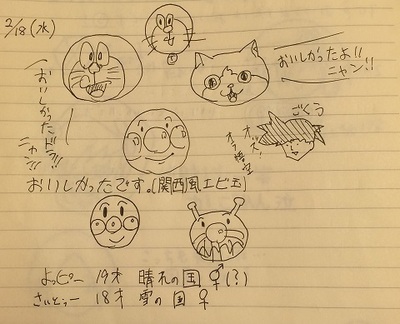 2/18(水)
おいしかったよ!!
ニャン!!
おいしかったドラ!!
ニャン!!
ごくう
オッス!
オラ悟空
おいしかったです。(関西風エビ玉)
よっぴー 19才 晴れの国 ♀(?)
さいとぅー 18才 雪の国 ♀